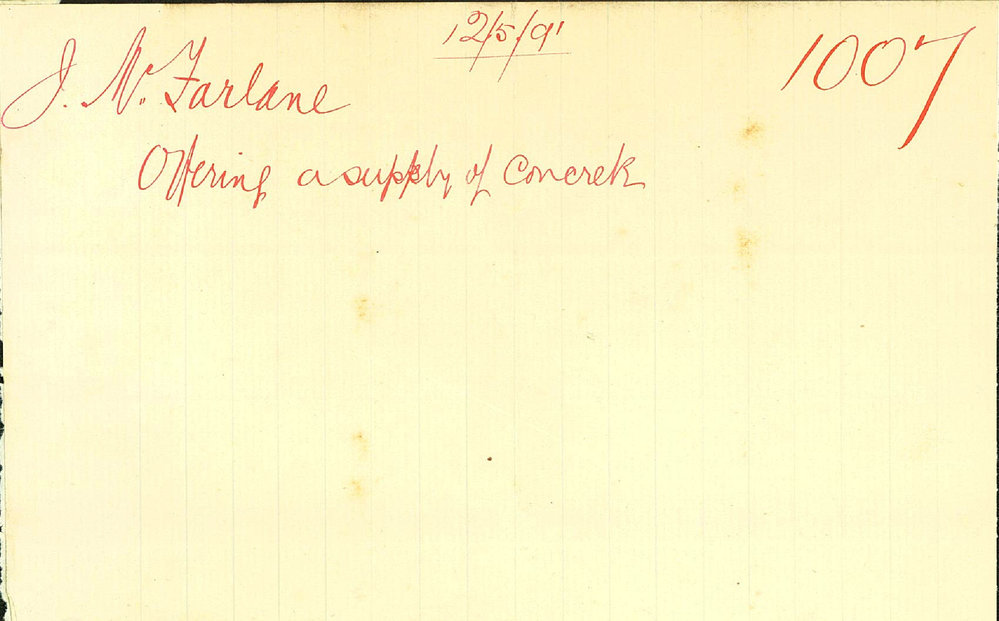 12/5/91
1007
J. Mc. Farlane
Offering a supply of Concrete